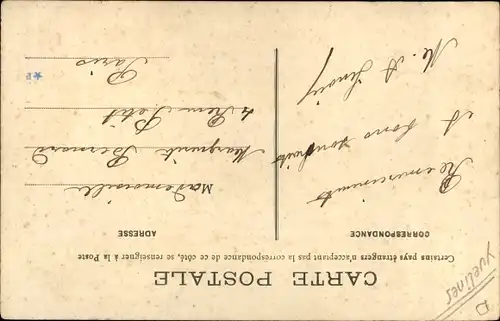 CARTE POSTALE
Certains pays étrangers n'acceptant pas la correspondance de ce côté, se renseigner à la Poste
CORRESPONDANCE
ADRESSE
Remerciements
& bons souhaits
Me. A.
Mademoiselle
Marguerite Bernard
4 Petit
Paris
Yvelines
D